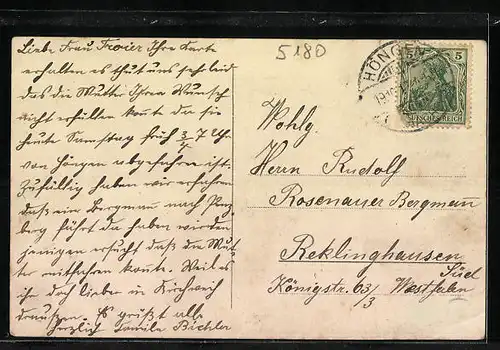 Liebe Frau Ihre Karte
erhalten es thut uns sehr leid
das die Mutter Ihren Wunsch
nicht erfüllen konte da sie
heute Samstag früh 7 Uhr
von Höngen abgefahren ist.
Zufällig haben wir erfahren
daß ein Bergman nach Penz
berg fährt da haben wir den
jenigen ersucht daß die Mut
ter mitfahren konte. Weil es
ihr doch lieber in Kirchreit
draußen. Es grüßt alle
Herzlich Familie Bichler
5180
HÖNGEN
5
DEUTSCHES REICH
Wohlg.
Herrn Rudolf
Rosenauer Bergman
Reklinghausen
Süd
Königstr. 63/3 Westfalen